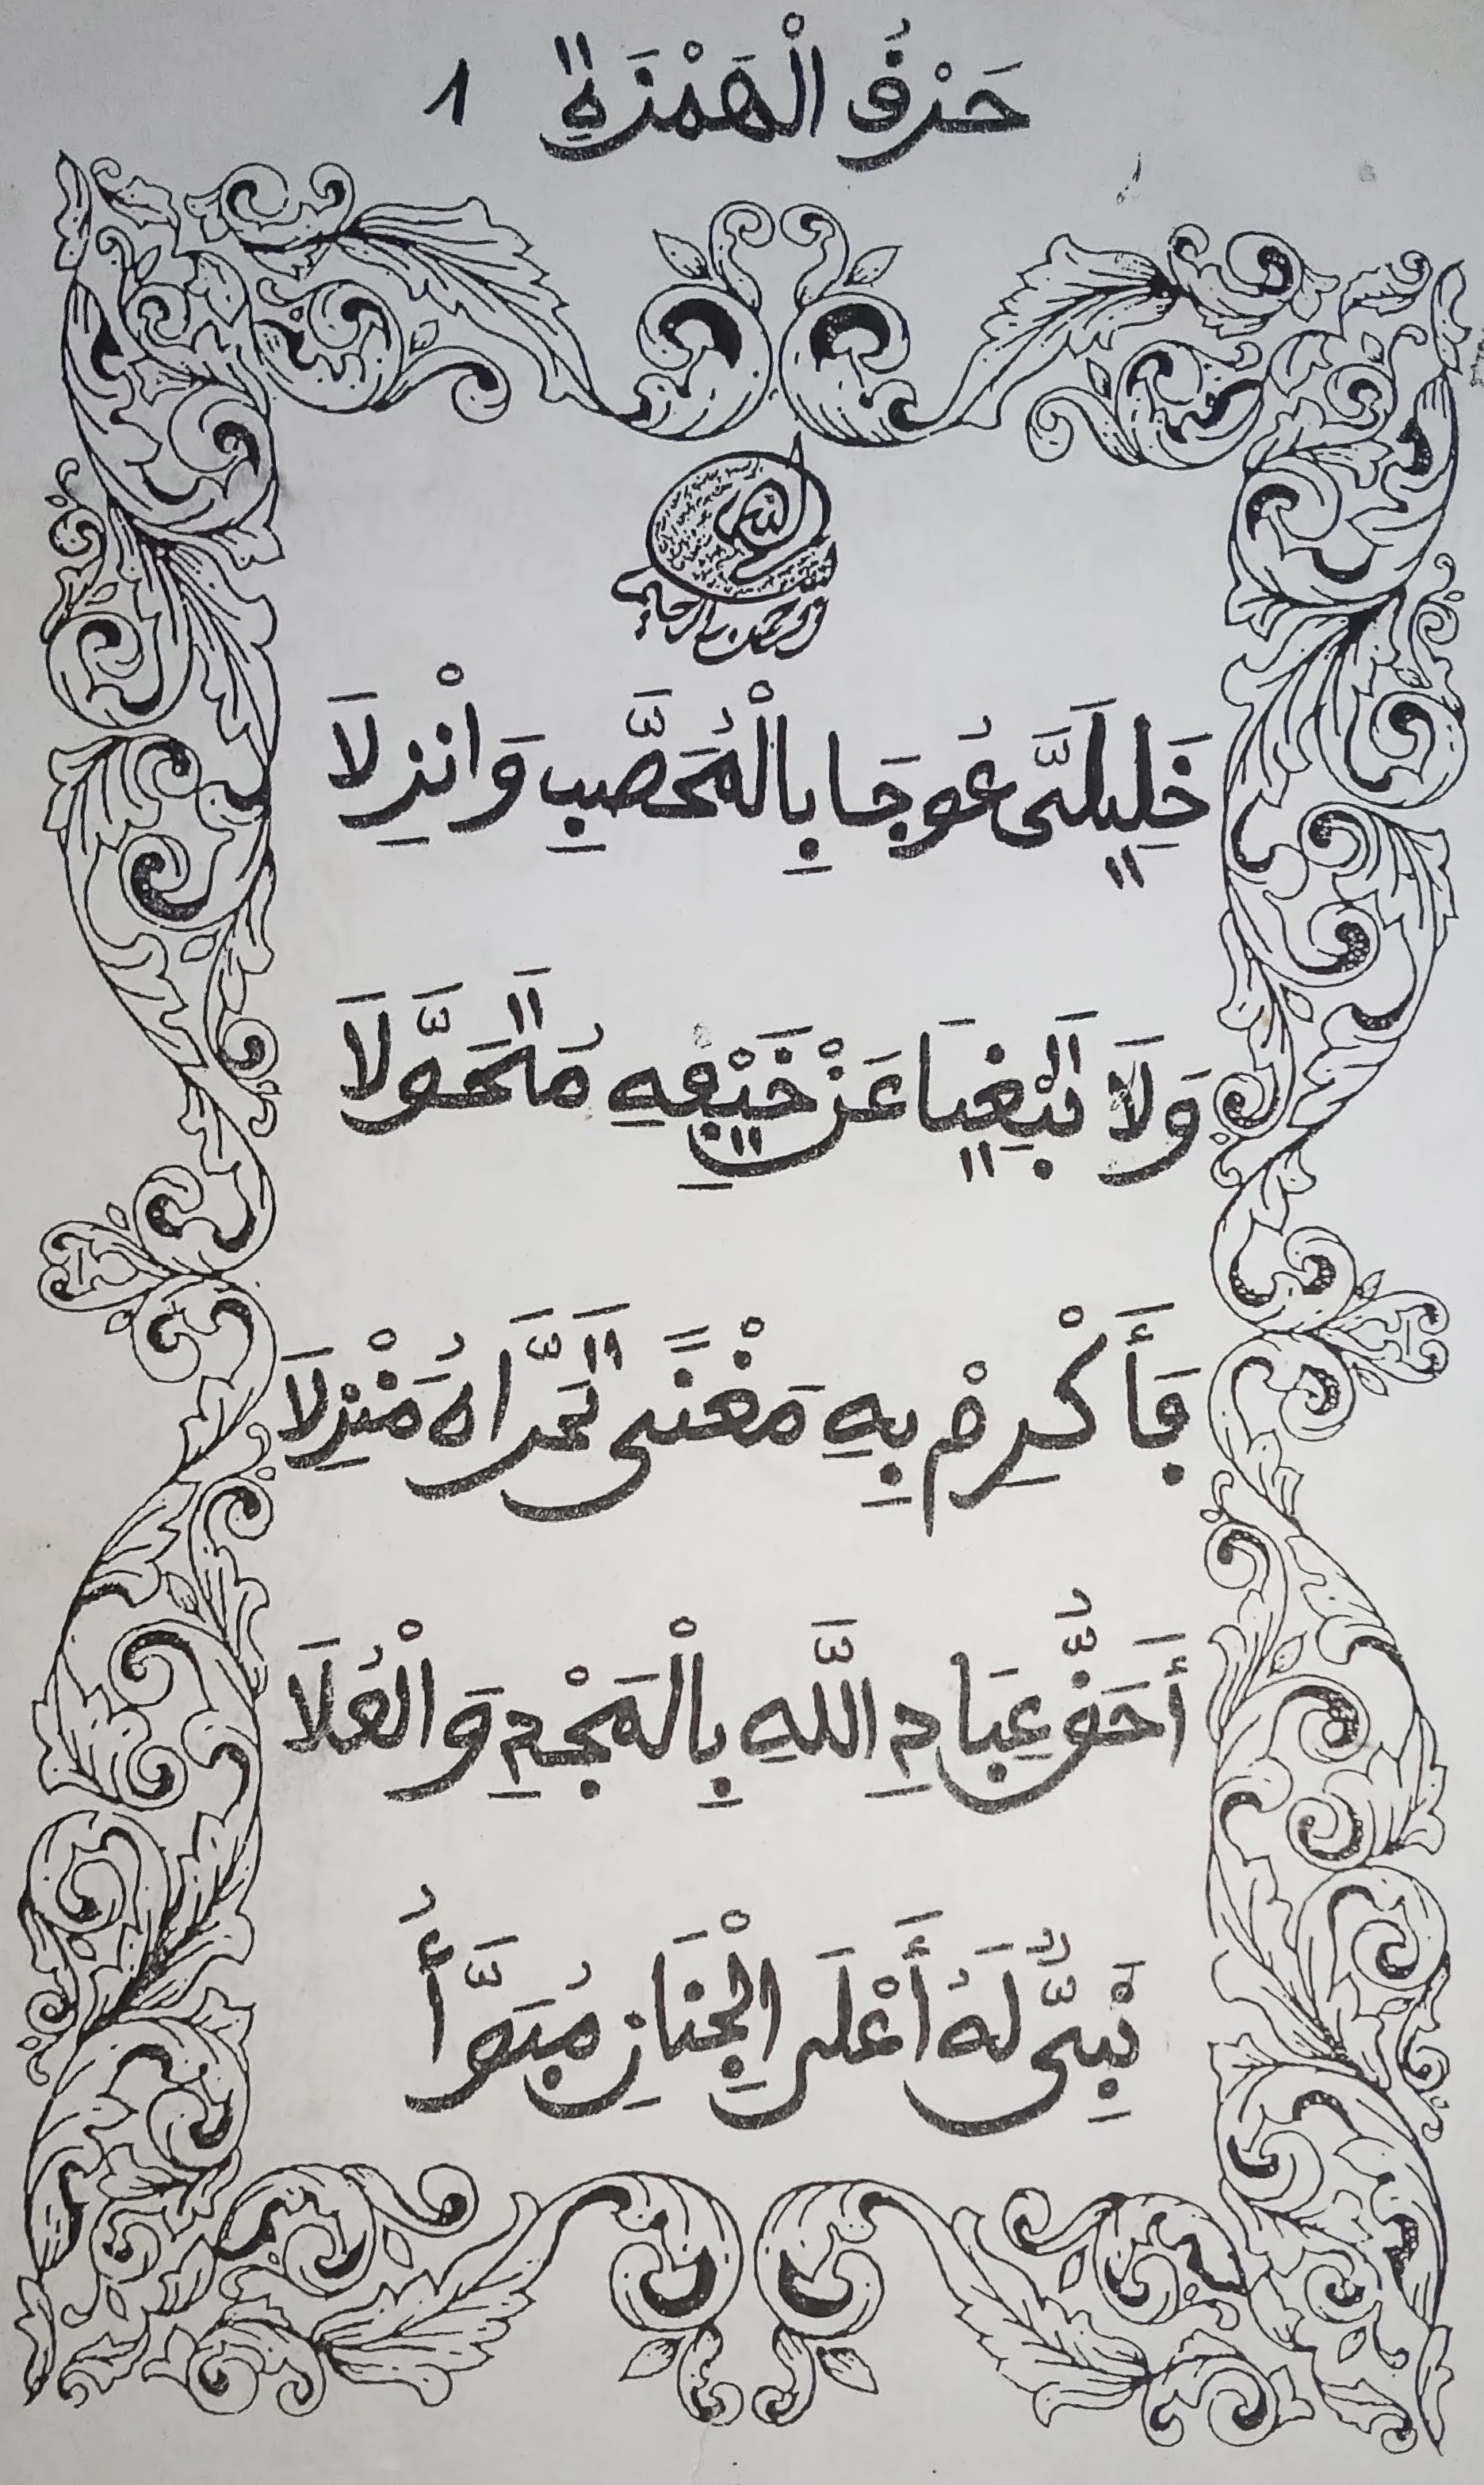 حَرْفُ الْهَمْزَةِ ١
خَلِيلَيَّ عُوجَا بِالْمُحَصَّبِ وَانْزِلَا
وَلَا تَبْغِيَا عَنْ خَيْفِهِ مُتَحَوَّلَا
فَأَكْرِمْ بِهِ مَغْنًى تَحَرَّاهُ مَنْزِلَا
أَحَقُّ عِبَادِ اللَّهِ بِالْمَجْدِ وَالْعُلَا
نَبِيٌّ لَهُ أَعْلَى الْجِنَانِ مُبَوَّأُ